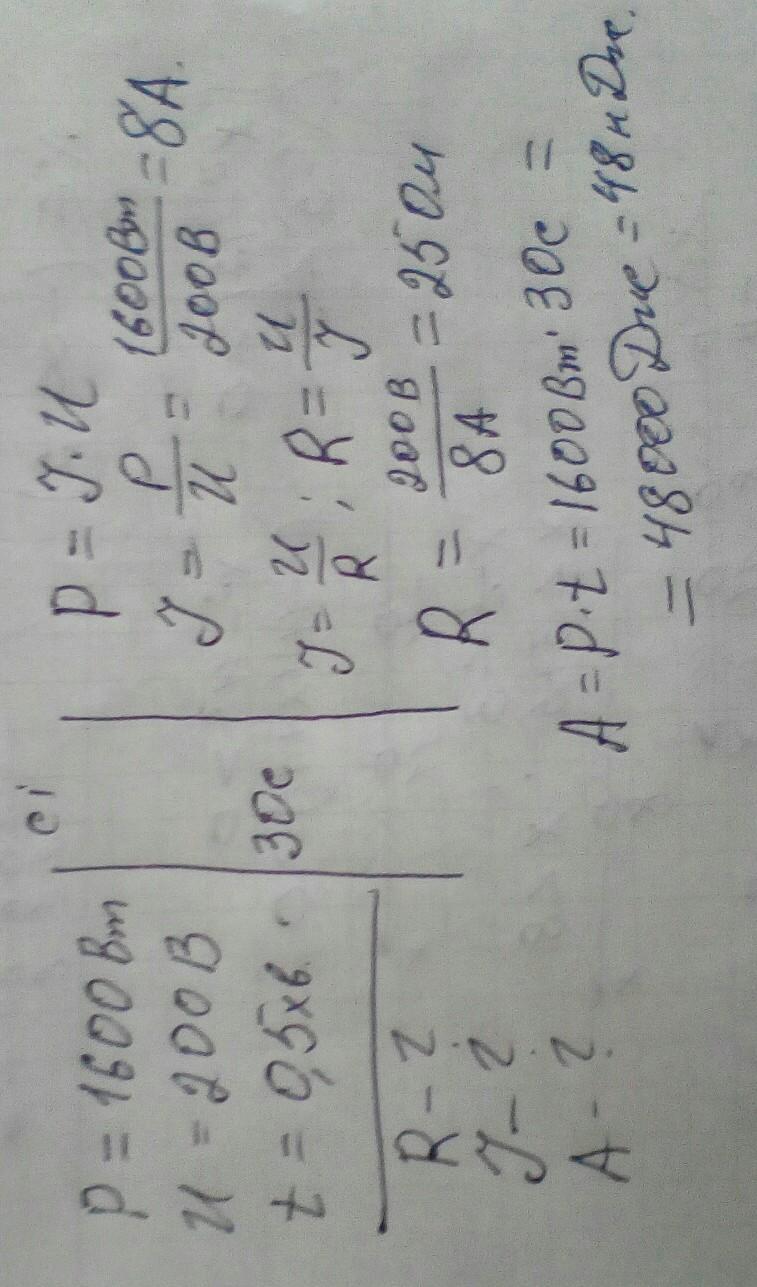 сі
P = 1600 Вт
U = 200 В
t = 0,5 хв.
30с
R - ?
I - ?
A - ?
P = I · U
I = P/U = 1600Вт/200В = 8А.
I = U/R ; R = U/I
R = 200В/8А = 25 Ом
A = P·t = 1600Вт·30с =
= 48000Дж = 48кДж.